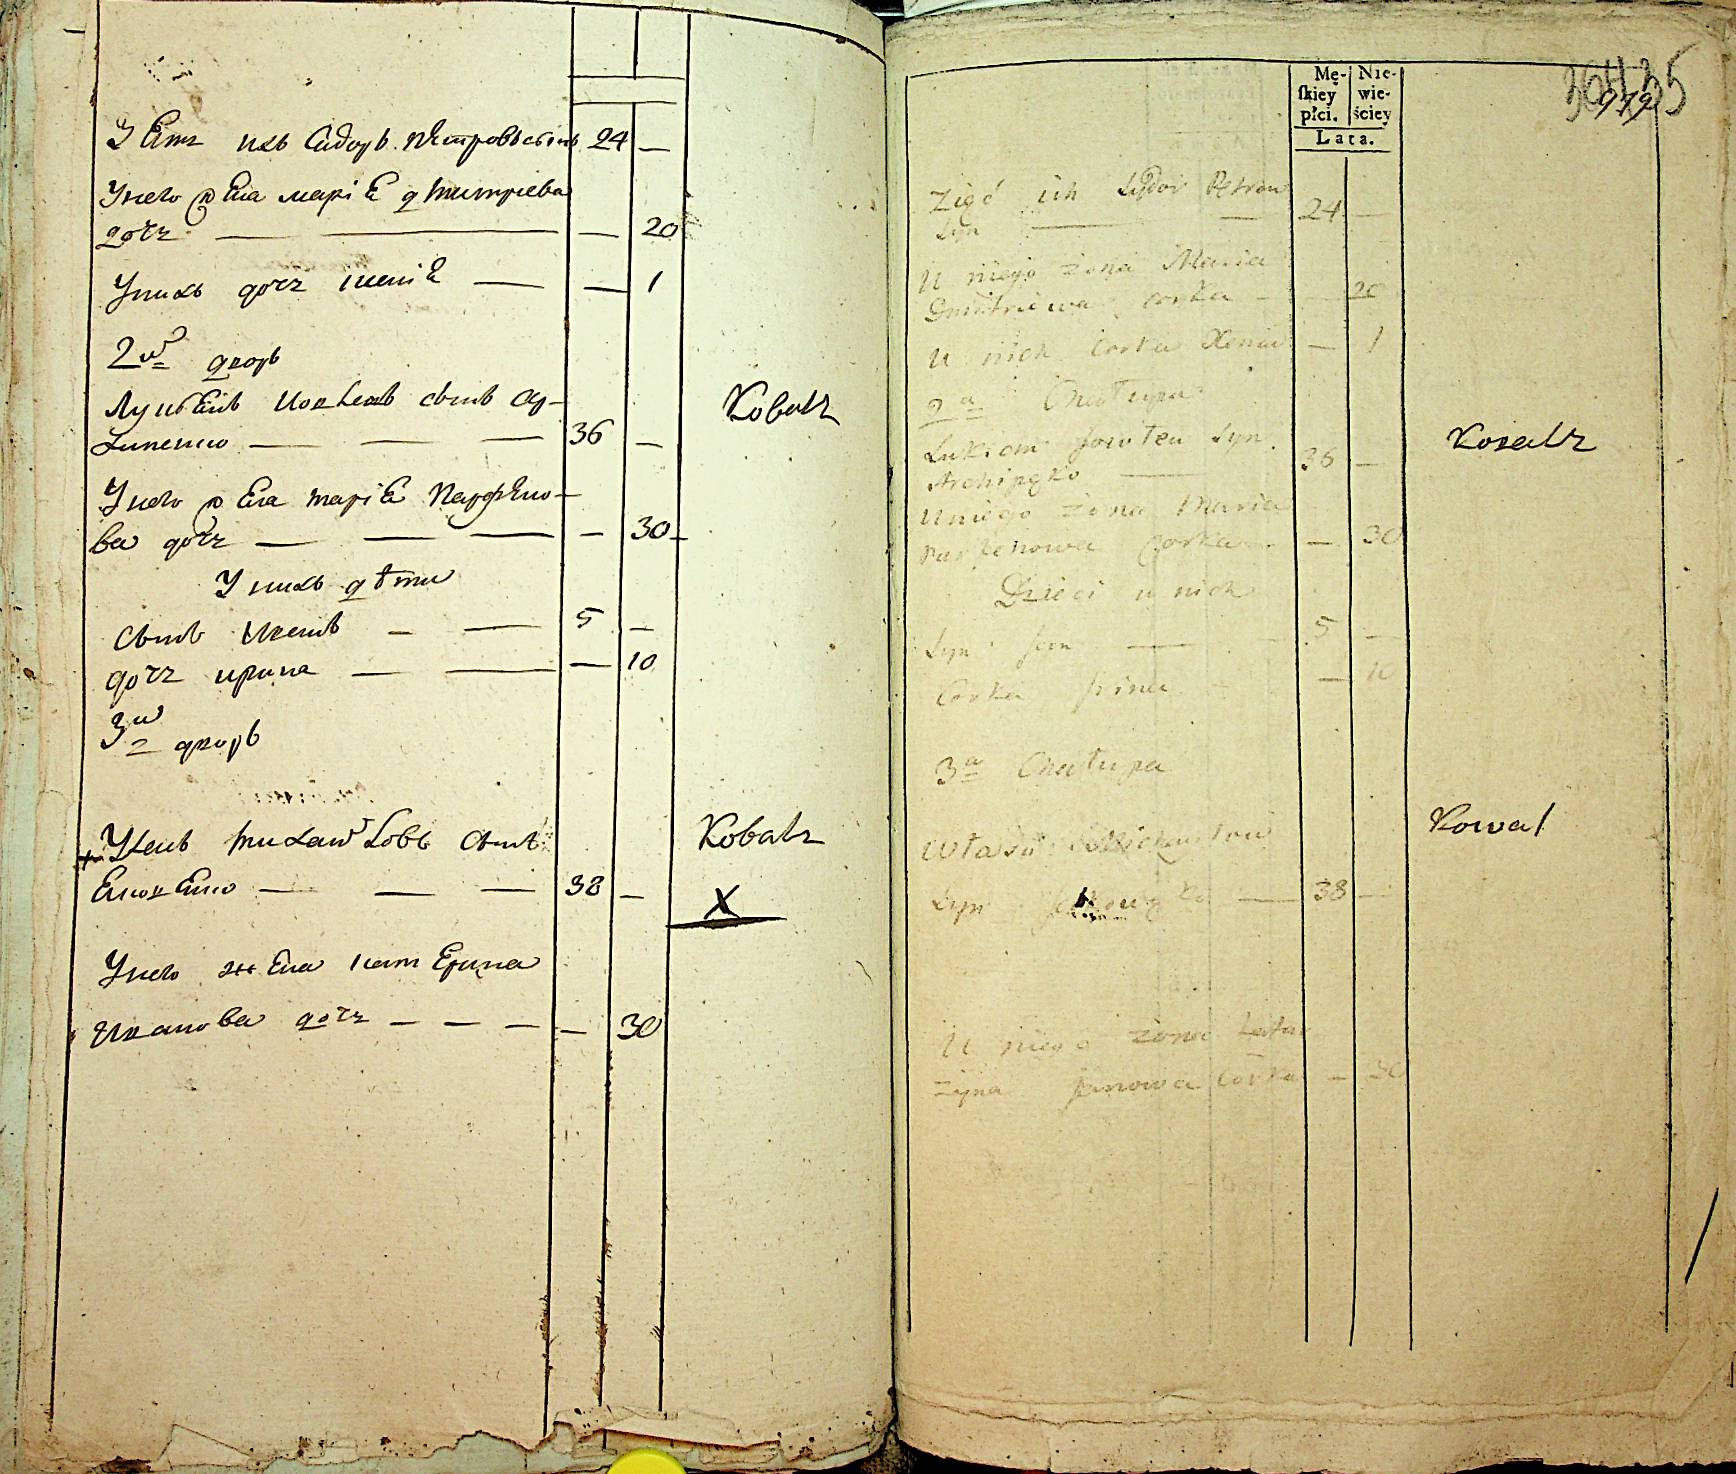 Зять ихъ Сидоръ Петровъ сынъ 24 —
У него жена Марія Дмитриева
дочь — — — 20
У нихъ дочь — — 1
2й дворъ
Лукьянъ сынъ Ар-
хипенко — — — 36 —
Kobalz
У него жена Марія Парфено-
ва дочь — — — — 30
У нихъ дѣти
Сынъ Иванъ — — 5 —
дочь Ирина — — — 10
3й дворъ
Власъ Михайловъ сынъ
38 —
Kobalz
X
У него жена Катерина
Иванова дочь — — — — 30
Mę-
skiey
płci.
Nie-
wie-
ściey
Lata.
979
Zięć ich Sydor Petrow
Syn — — 24 —
U niego żona Maria
Dmitriewa corka — — 20
U nich Corka Xenia — 1
2a Chałupa
Lukian Syn
— 36 —
Kowalz
U niego żona Maria
Parfenowa Corka — — 30
Dzieci u nich
Syn Jan — 5 —
Corka Irina — 10
3a Chałupa
Własi Michayłow
Syn — 38 —
Kowal
U niego żona Kata-
Janowa Corka — 30